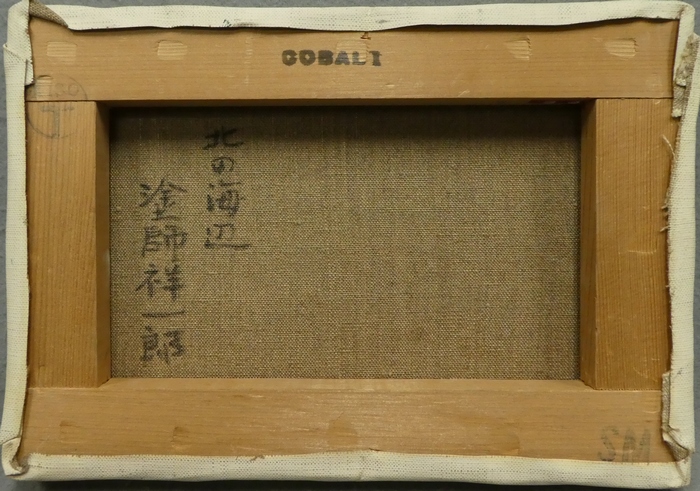 COBALT
北の海辺
塗師祥一郎
SM